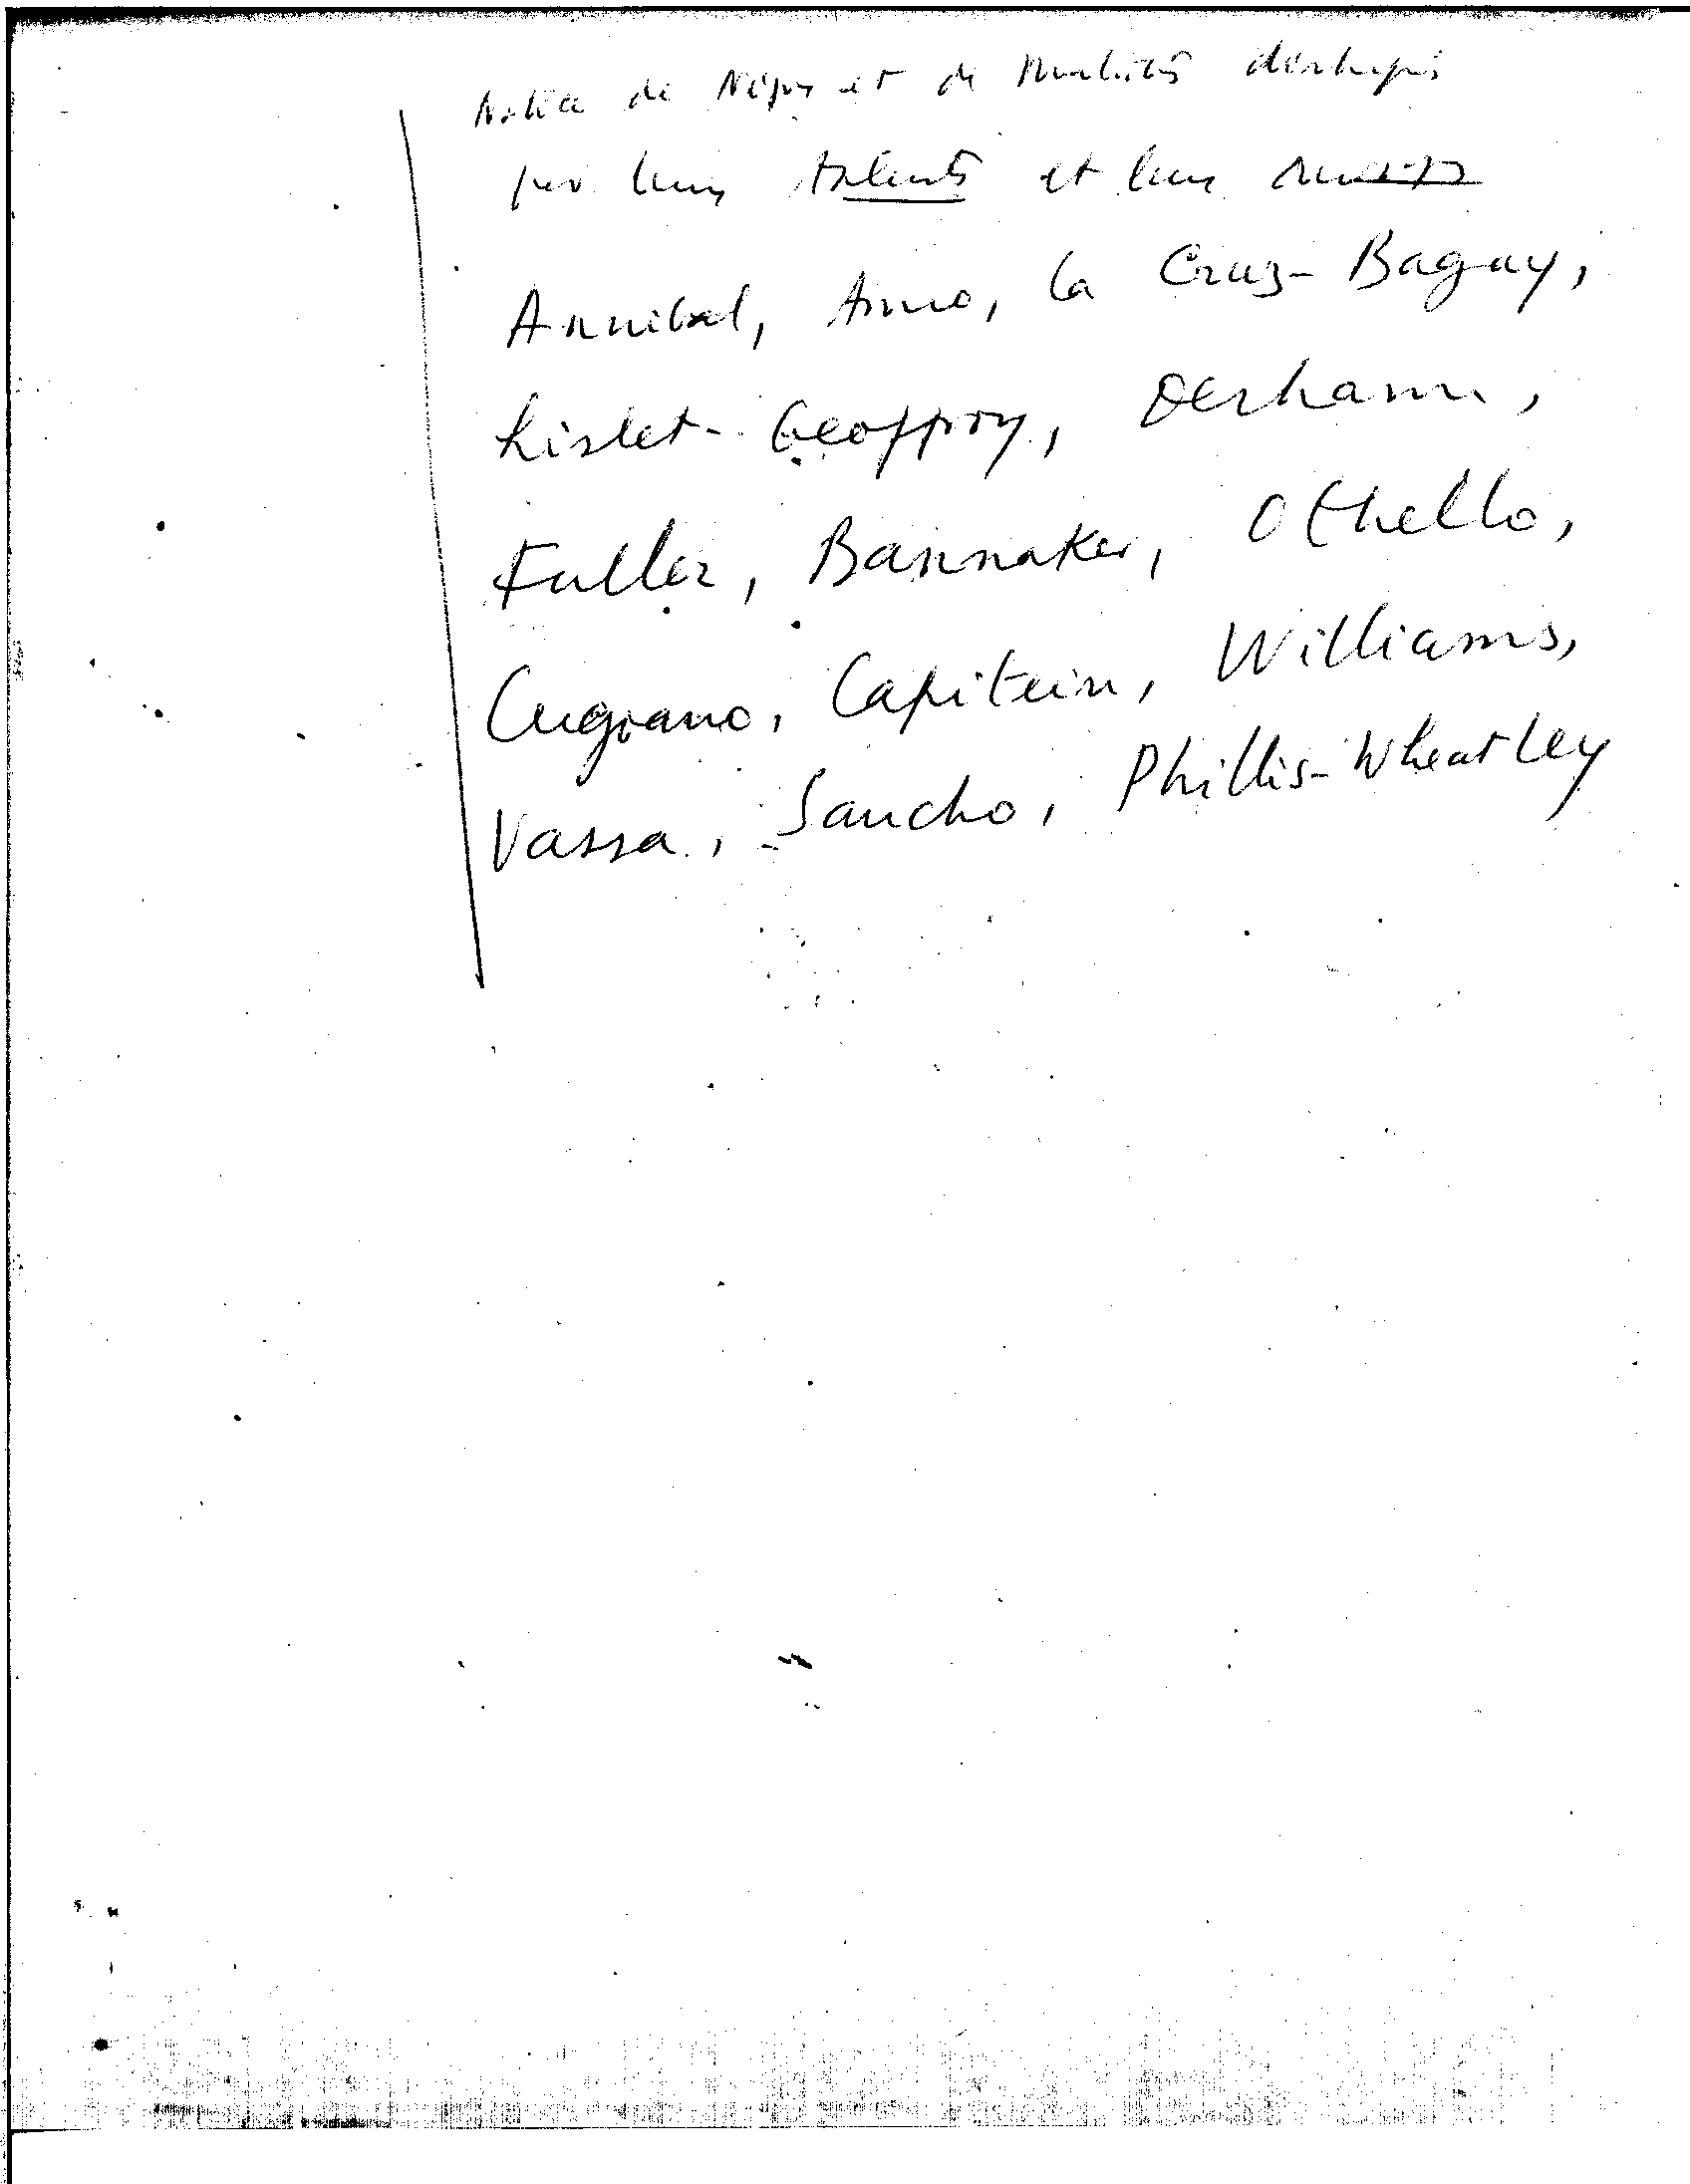 Notice de Nègres et de Mulâtres distingués
par leurs talents et leurs
Annibal, Amo, la Cruz-Bagay,
Lislet-Geoffroy, Derham,
Fuller, Bannaker, Othello,
Cugoano, Capitein, Williams,
Vassa, Sancho, Phillis-Wheatley